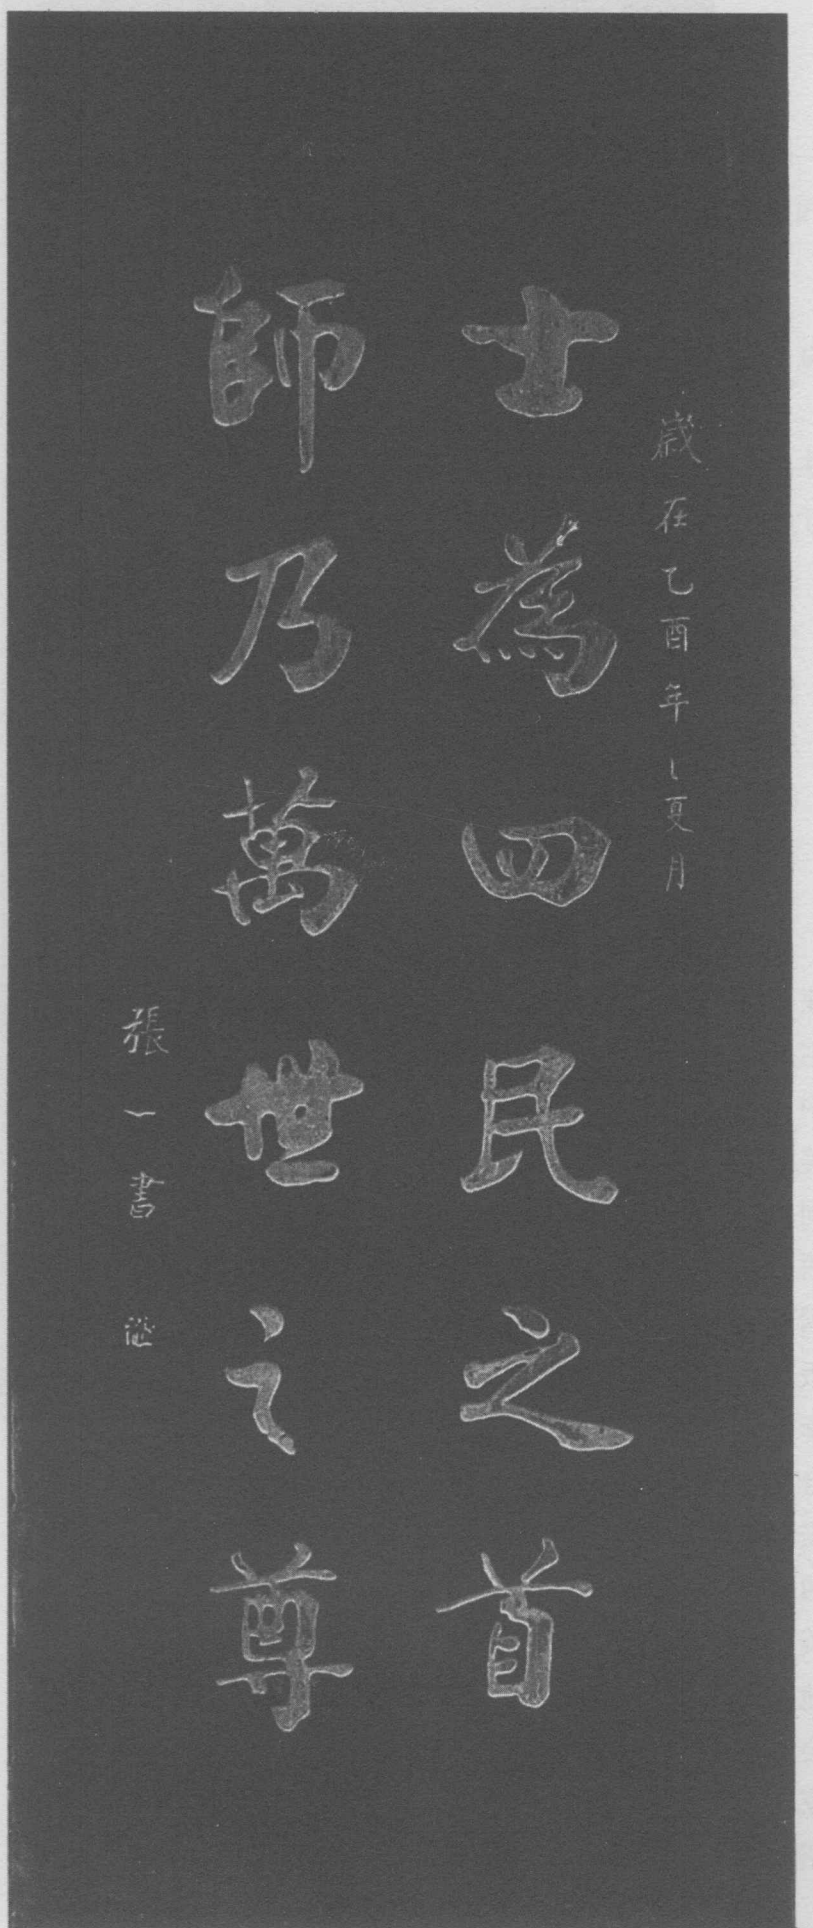 歲在乙酉年之夏月
士為四民之首
師乃萬世之尊
張一書